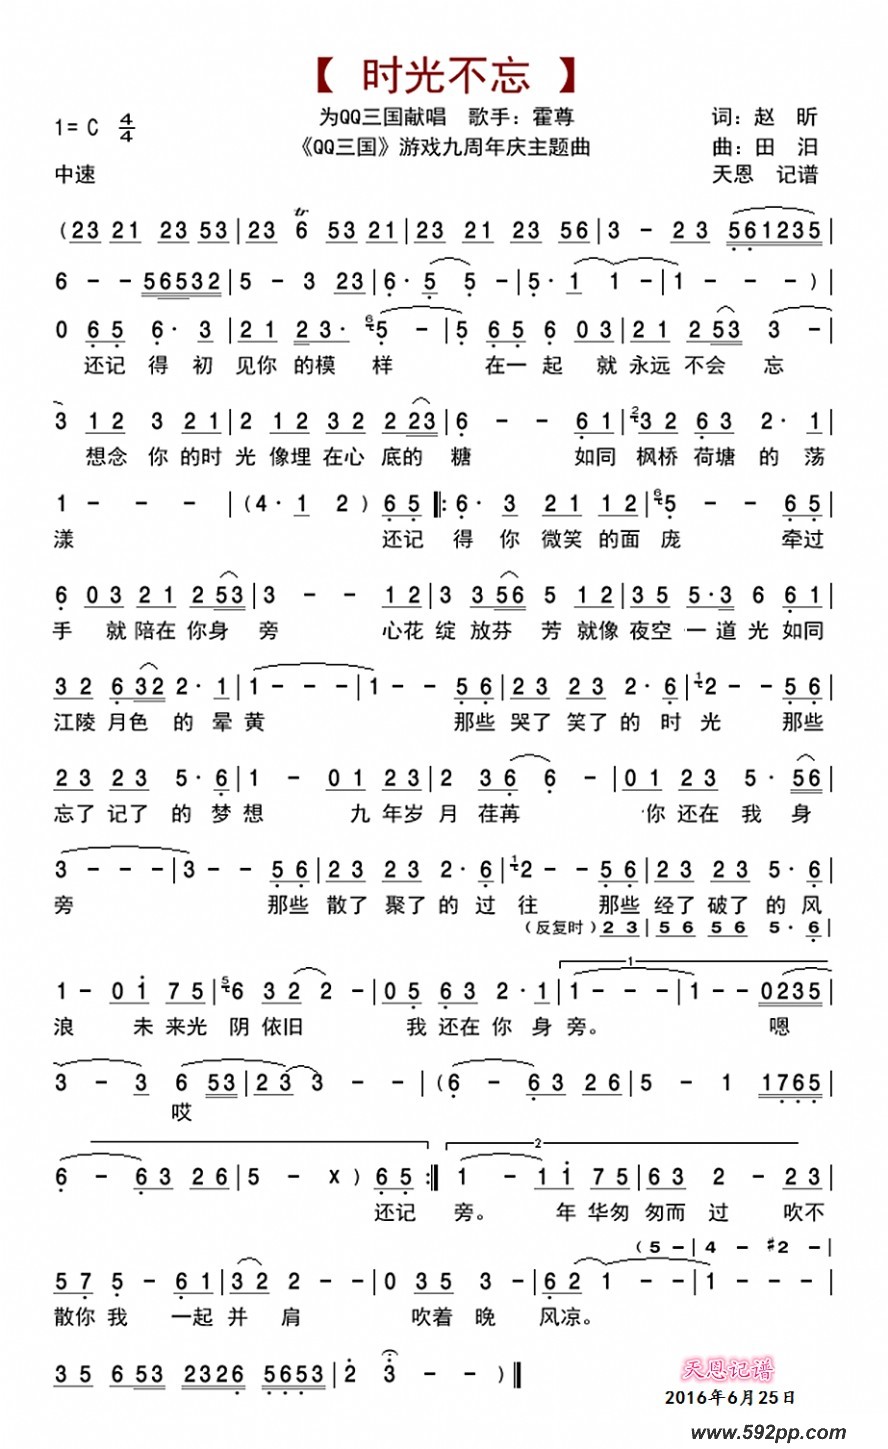 【 时光不忘 】
1= C 4/4 为QQ三国献唱 歌手：霍尊 词：赵 昕
《QQ三国》游戏九周年庆主题曲 曲：田 汨
中速 天恩 记谱
tr
( 23 21 23 53 | 23 6 53 21 | 23 21 23 56 | 3 - 23 561235 |
6 - - 56532 | 5 - 3 23 | 6· 5 5 - | 5· 1 1 - | 1 - - - ) |
0 65 6· 3 | 21 23· 6 5 - | 5 65 6 03 | 21 253 3 - |
还记 得 初 见你 的模 样 在一 起 就 永远 不会 忘
3 12 3 21 | 2 12 32 223 | 6 - - 61 | 2 32 63 2· 1 |
想念 你 的时 光 像埋 在心 底的 糖 如同 枫桥 荷塘 的 荡
1 - - - | (4· 1 2 ) 65 |: 6· 3 21 12 | 6 5 - - 65 |
漾 还记 得 你 微笑 的面 庞 牵过
6 03 21 253 | 3 - - 12 | 3 356 5 12 | 35 5·3 6 61 |
手 就 陪在 你身 旁 心花 绽 放芬 芳 就像 夜空 一 道 光 如同
32 632 2· 1 | 1 - - - | 1 - - 56 | 23 23 2· 6 | 1 2 - - 56 |
江陵 月色 的 晕 黄 那些 哭了 笑了 的 时 光 那些
23 23 5· 6 | 1 - 01 23 | 2 36 6 - | 01 23 5· 56 |
忘了 记了 的 梦 想 九 年岁 月 荏苒 你 还在 我 身
3 - - - | 3 - - 56 | 23 23 2· 6 | 1 2 - - 56 | 23 23 5· 6 |
旁 那些 散了 聚了 的 过 往 那些 经了 破了 的 风
(反复时) 23 | 56 56 5· 6 |
1 - 01 75 | 5 6 32 2 - | 05 63 2· 1 | 1 - - - | 1 - - 0235 |
1
浪 未 来光 阴 依旧 我 还在 你 身 旁。 嗯
3 - 3 6 53 | 23 3 - - | (6 - 63 26 | 5 - 1 1765 |
哎
6 - 63 26 | 5 - x ) 65 :| 1 - 11 75 | 63 2 - 23 |
2
还记 旁。 年 华匆 匆而 过 吹不
( 5 - | 4 - #2 - |
57 5 - 61 | 32 2 - - | 03 35 3 - | 62 1 - - | 1 - - - |
散你 我 一起 并 肩 吹着 晚 风凉。
35 653 2326 5653 | 2 3 - - | 5 ‖
天恩记谱
2016年6月25日
www.592pp.com